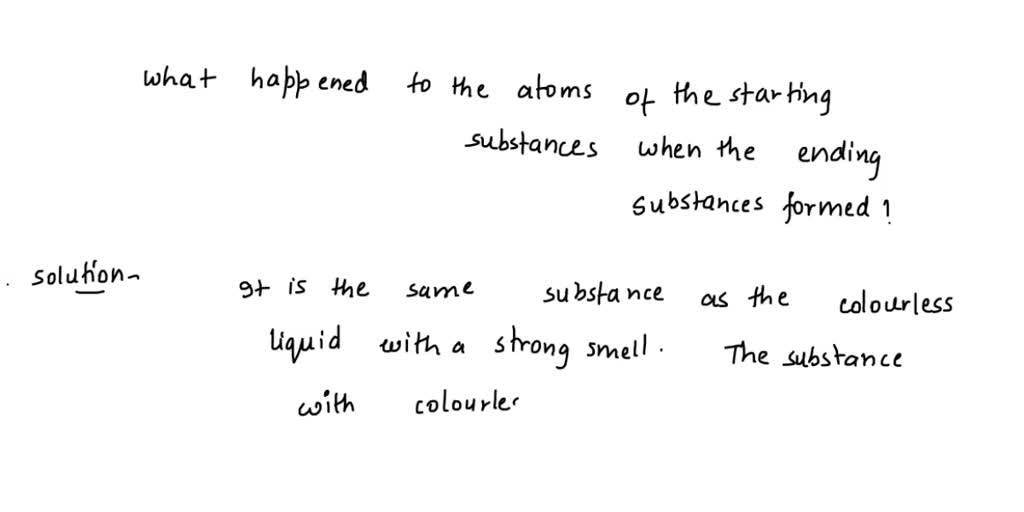 what happened to the atoms of the starting
substances when the ending
substances formed ?
. solution-
It is the same substance as the colourless
liquid with a strong smell. The substance
with colourle